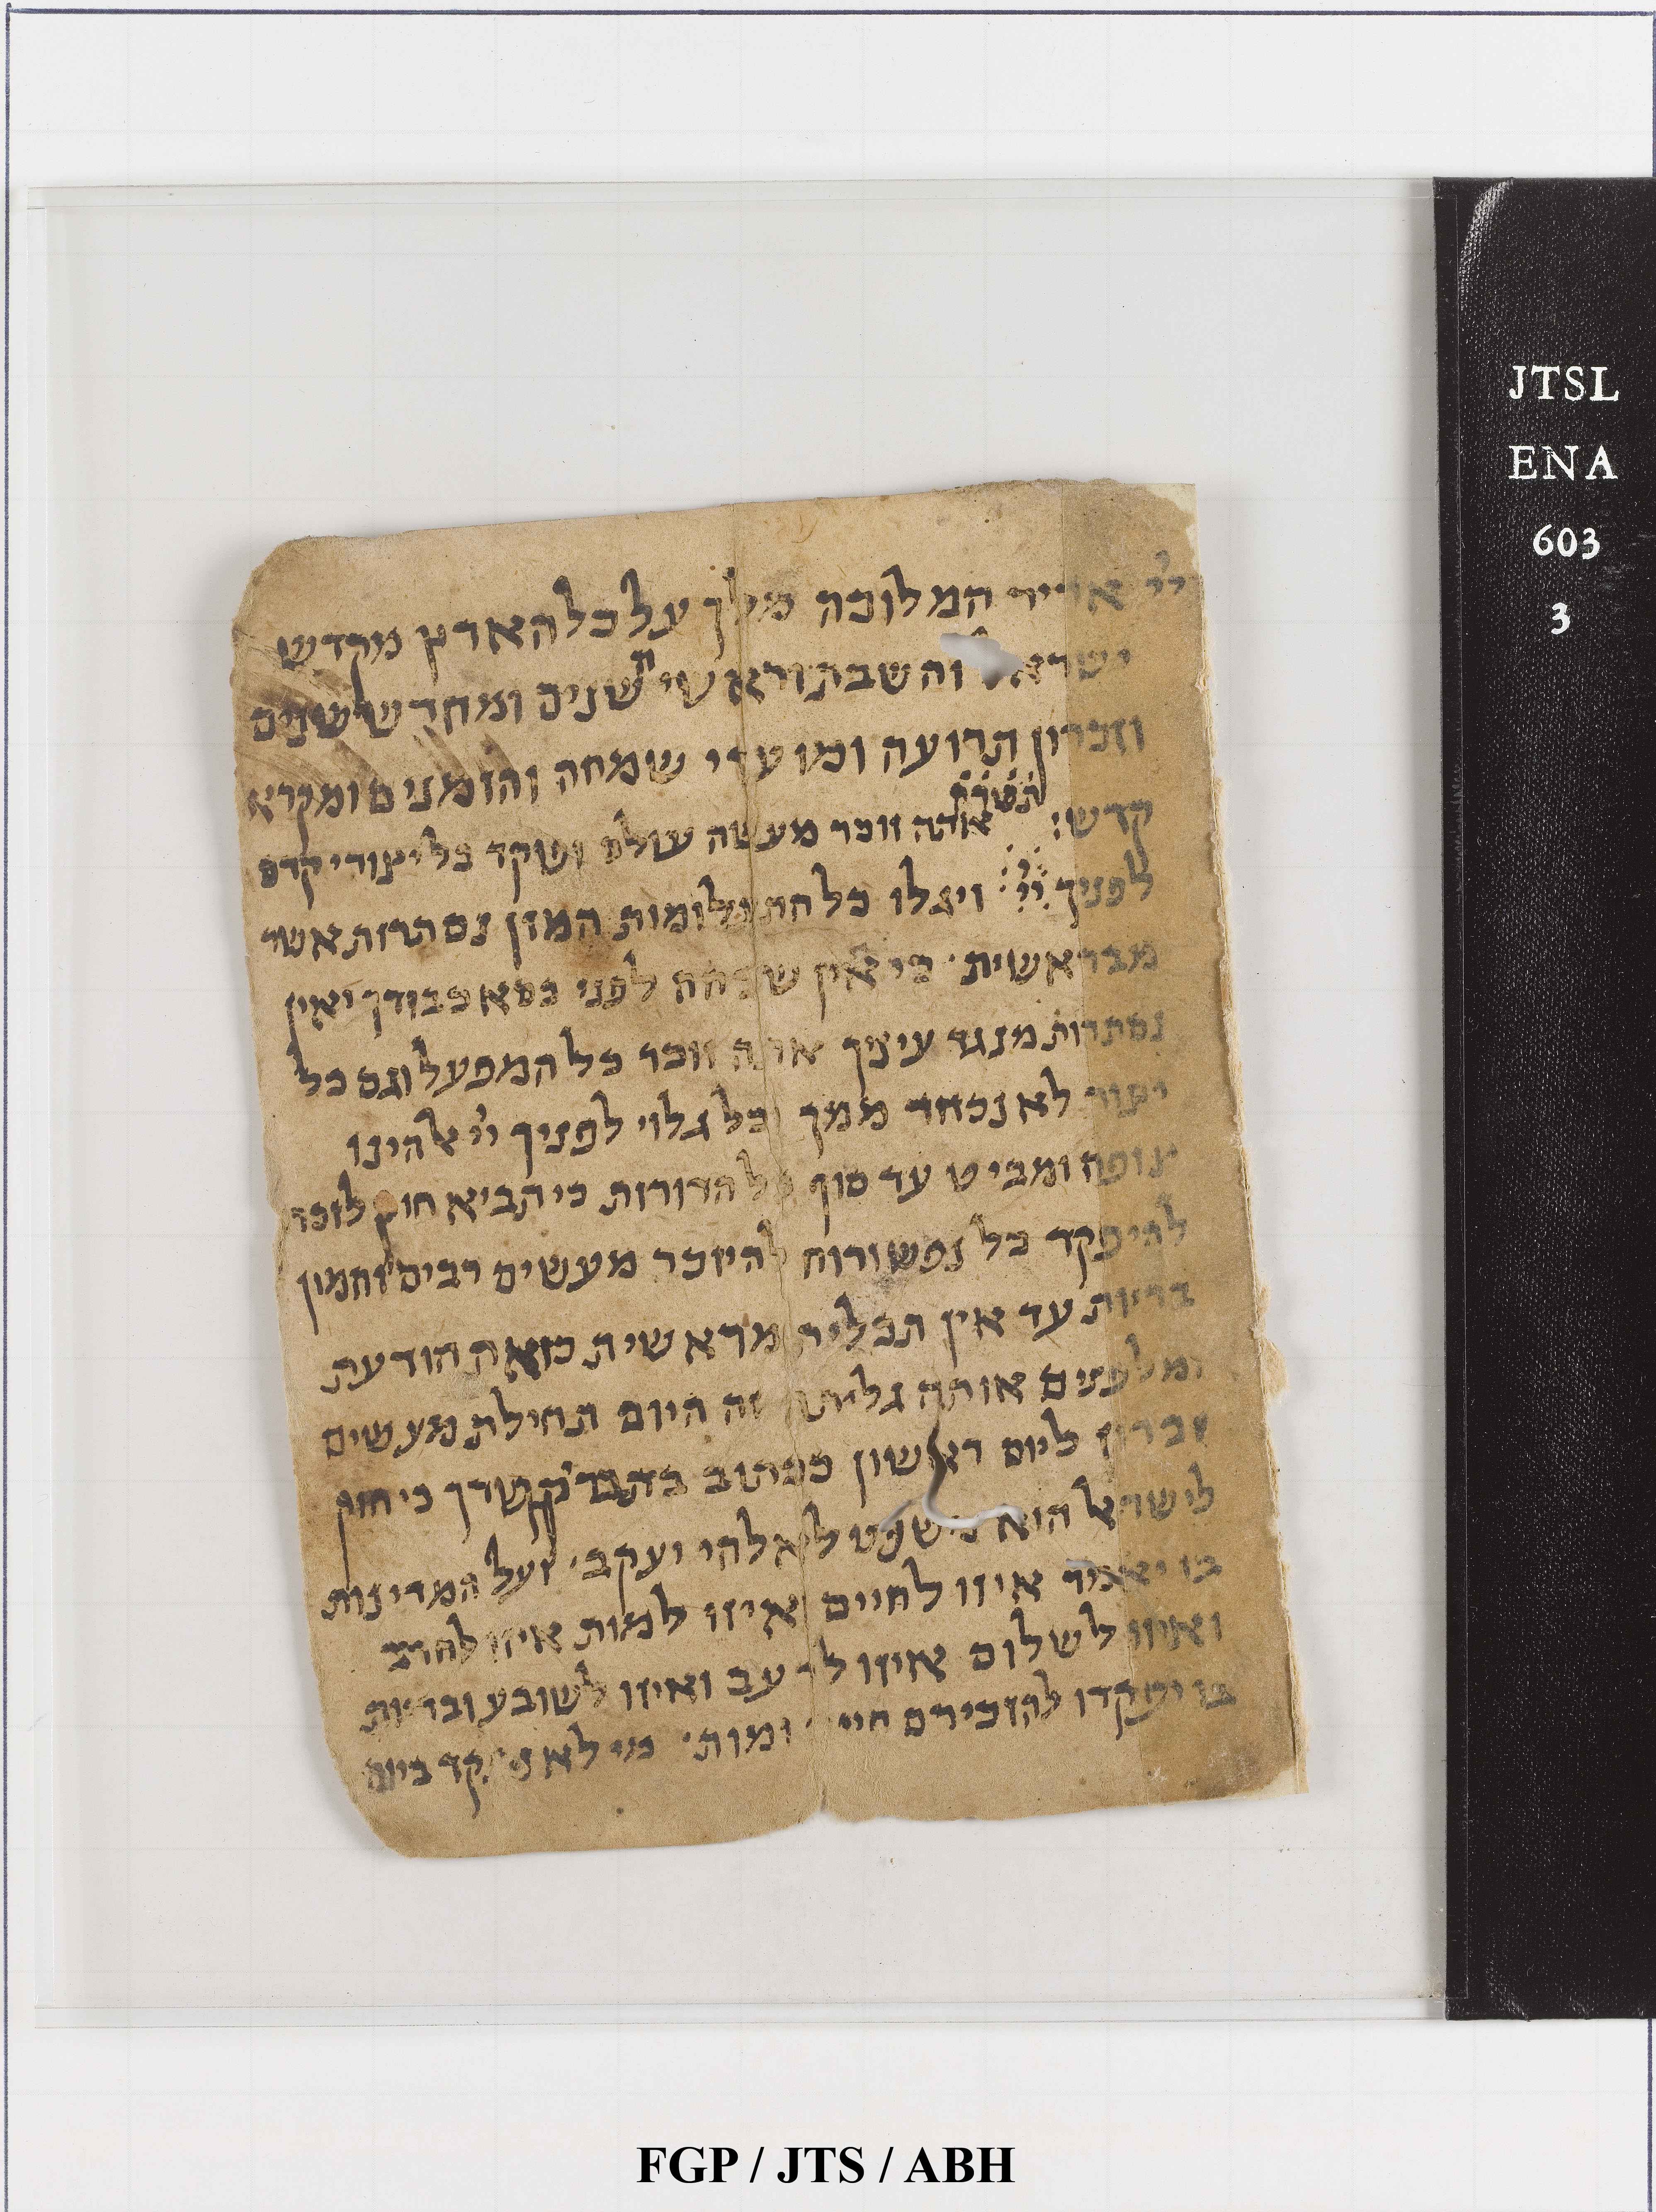 ייי אדיר המלוכה מלך על כל הארץ מקדש
ישראל והשבת וראשי שנים ומחדש שנים
ח
וזכרון תרועה ומועדי שמחה והזמנים ומקרא
קדש: אתה זוכר מעשה עולם ופוקד כל יצורי קדם
תשרת
לפניך ייי ויגלו כל תעלומות המון נסתרות אשר
מבראשית כי אין שכחה לפני כסא כבודך ואין
נסתרות מנגד עיניך אתה זוכר כל המפעל וגם כל
יצור לא נכחד ממך כל גלוי לפניך ייי אלהינו
צופה ומביט עד סוף כל הדורות כי תביא חוק לזכר
להיפקד כל נפש ורוח להיזכר מעשים רבים והמון
בריות עד אין תכלית מראשית כזאת הודעת
ומלפנים אותה גלית זה היום תחילת מעשים
זכרון ליום ראשון ככתוב קדשך כי חוק
לישראל הוא משפט לאלהי יעקב ועל המדינות
בו יאמר איזו לחיים איזו למות איזו לחרב
ואיזו לשלום איזו לרעב ואיזו לשובע ובריות
בו יפקדו להזכירם חיים ומות כי לא נפקד ביום
JTSL
ENA
603
3
FGP / JTS / ABH